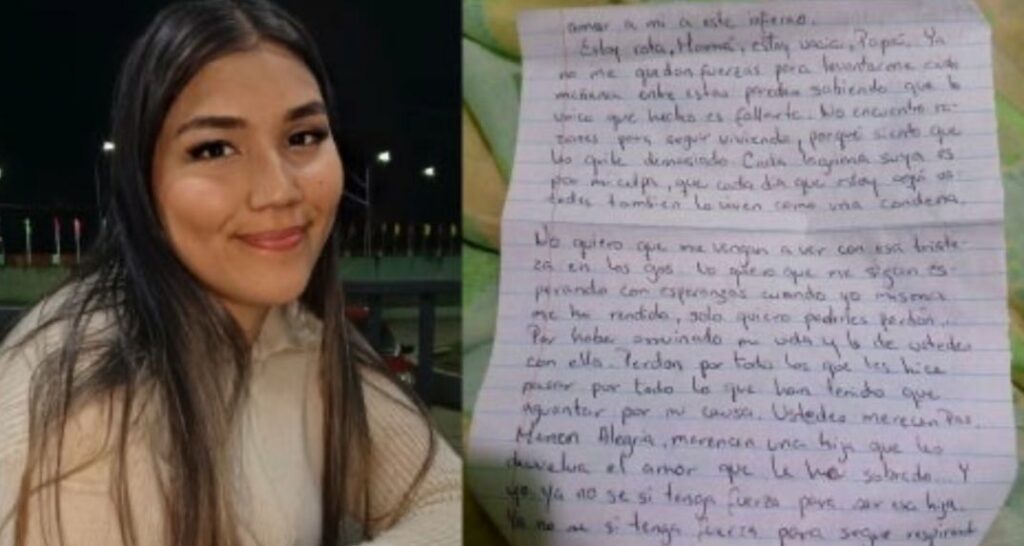 amor a mi a este infierno.
Estoy rota, Mamá, estoy vacia, Papá. Ya
no me quedan fuerzas para levantarme cada
mañana entre estas paredes sabiendo que lo
unico que hecho es fallarle. No encuentro ra-
zones para seguir viviendo, porque siento que
lo quite demasiado Cada lagrima suya es
por mi culpa, que cada dia que estoy aqui us
tedes tambien lo viven como una condena.
No quiero que me vengan a ver con esa triste-
za en los ojos. No quiero que me sigan es-
perando con esperanzas cuando yo misma
me he rendido, solo quiero pedirles perdón...
Por haber arruinado mi vida y la de ustedes
con ella. Perdon por todo los que les hice
pasar por todo lo que han tenido que
aguantar por mi causa. Ustedes merecen Paz.
Merecen Alegria, merencen una hija que les
devuelva el amor que le ha sobrado... Y
yo, ya no se si tenga fuerza para ser esa hija.
Ya no se si tenga fuerza para segue respirant